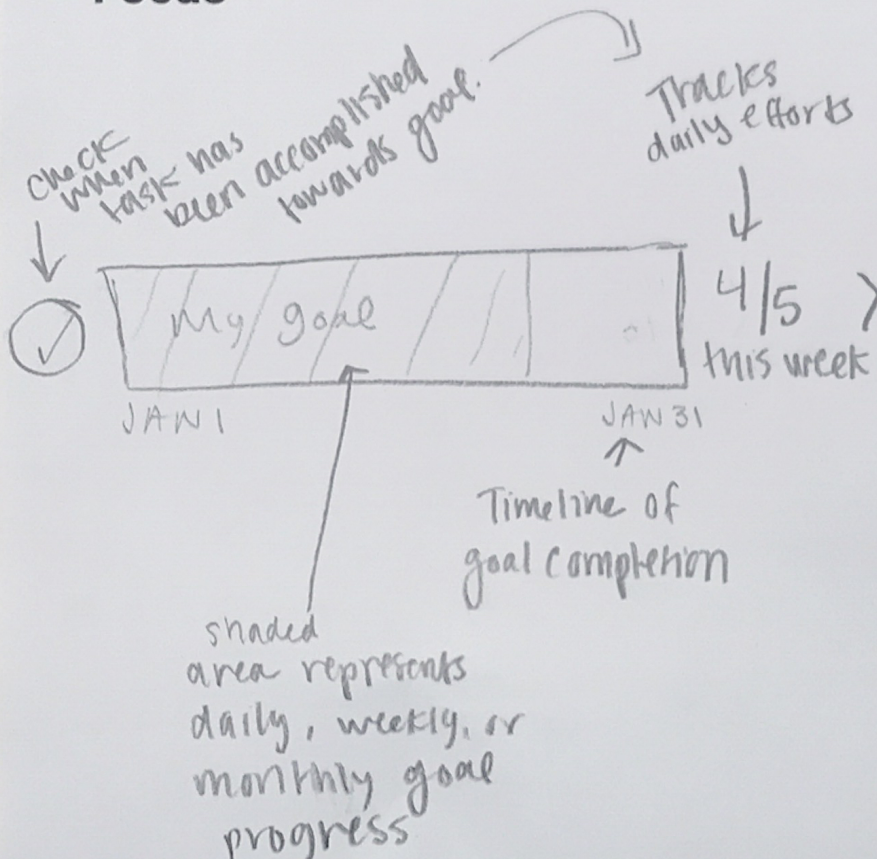 check
when
task has
been accomplished
towards goal.
Tracks
daily efforts
My goal
4/5
this week
JAN 1
JAN 31
Timeline of
goal completion
shaded
area represents
daily, weekly, or
monthly goal
progress